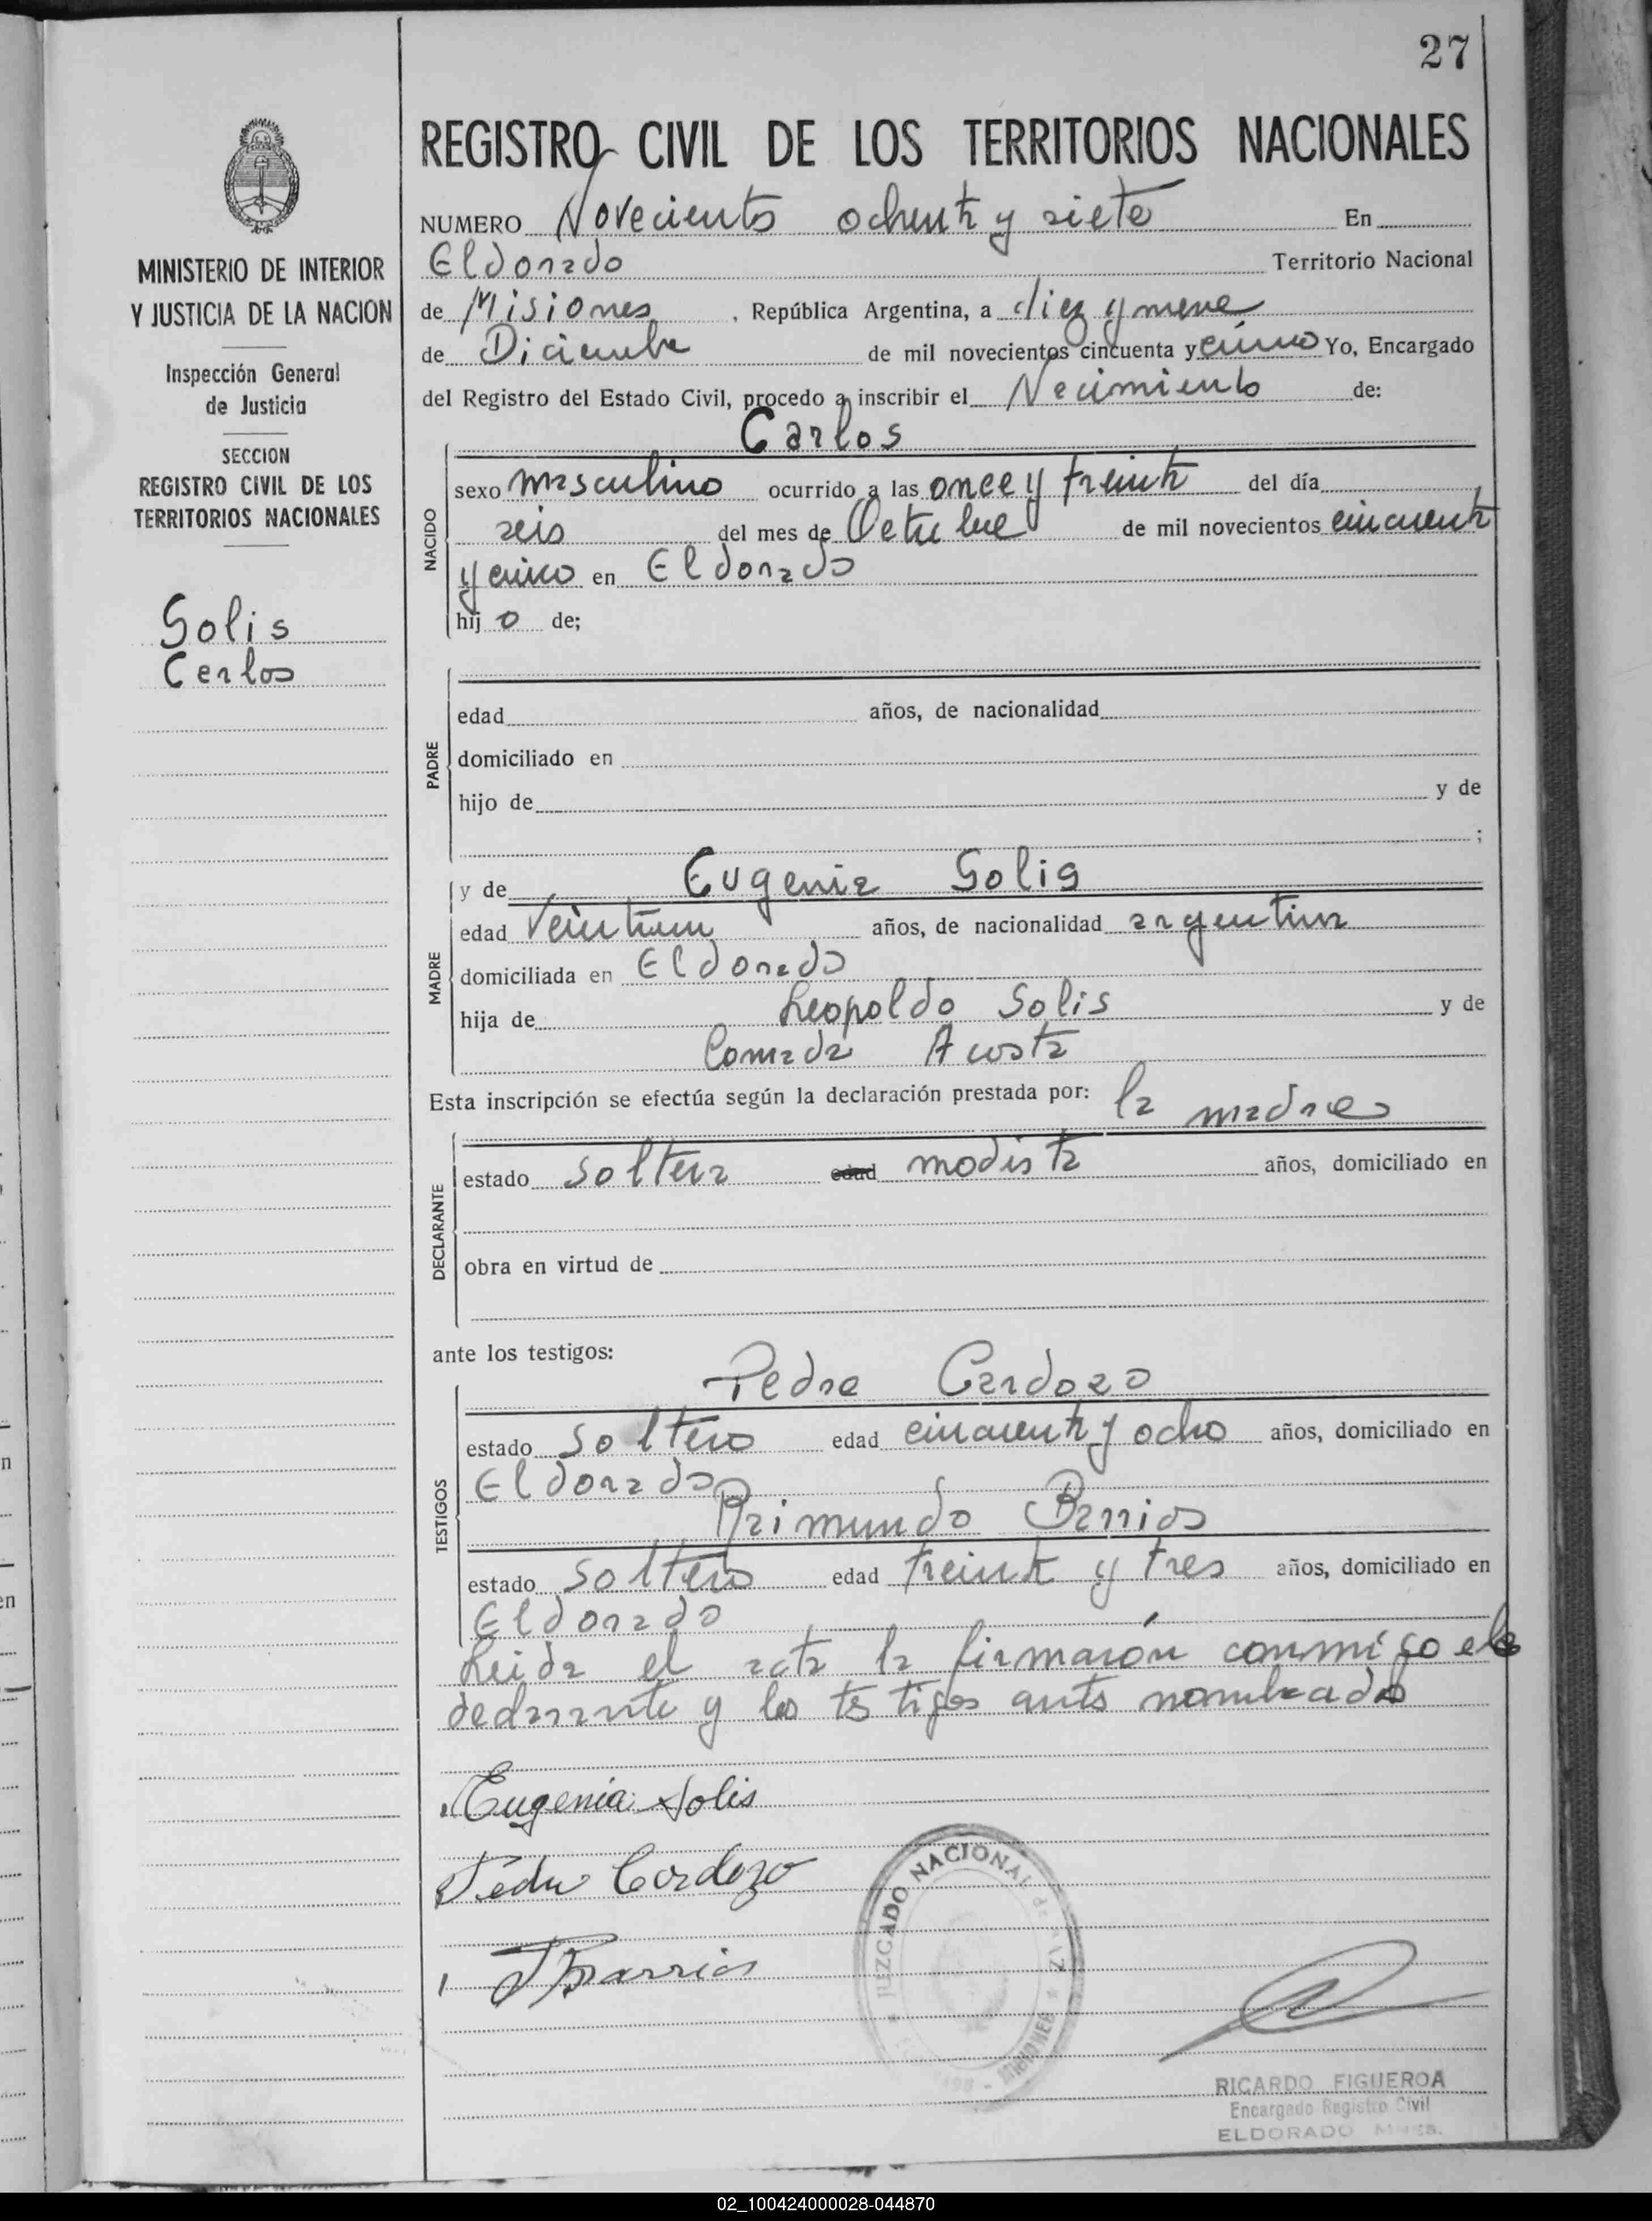 27
REGISTRO CIVIL DE LOS TERRITORIOS NACIONALES
MINISTERIO DE INTERIOR
Y JUSTICIA DE LA NACION
Inspección General
de Justicia
SECCION
REGISTRO CIVIL DE LOS
TERRITORIOS NACIONALES
Solis
Carlos
NUMERO Novecientos ochenta y siete En
Eldorado Territorio Nacional
de Misiones, República Argentina, a diez y nueve
de Diciembre de mil novecientos cincuenta y cinco Yo, Encargado
del Registro del Estado Civil, procedo a inscribir el Nacimiento de:
Carlos
NACIDO
sexo masculino ocurrido a las once y treinta del día
seis del mes de Octubre de mil novecientos cincuenta
y cinco en Eldorado
hijo de;
PADRE
edad años, de nacionalidad
domiciliado en
hijo de y de
;
MADRE
y de Eugenia Solis
edad Veintiun años, de nacionalidad argentina
domiciliada en Eldorado
hija de Leopoldo Solis y de
Acosta
Esta inscripción se efectúa según la declaración prestada por: la madre
DECLARANTE
estado soltera edad modista años, domiciliado en
obra en virtud de
ante los testigos:
TESTIGOS
Pedro Cardozo
estado soltero edad cincuenta y ocho años, domiciliado en
Eldorado
Raimundo Barrios
estado soltero edad treinta y tres años, domiciliado en
Eldorado
Leida el acta la firmarón conmigo el
declarante y los testigos antes nombrados
Eugenia Solis
Pedro Cardozo
Barrios
JUZGADO NACIONAL de PAZ
MISIONES
RICARDO FIGUEROA
Encargado Registro Civil
ELDORADO Mnes.
02_100424000028-044870